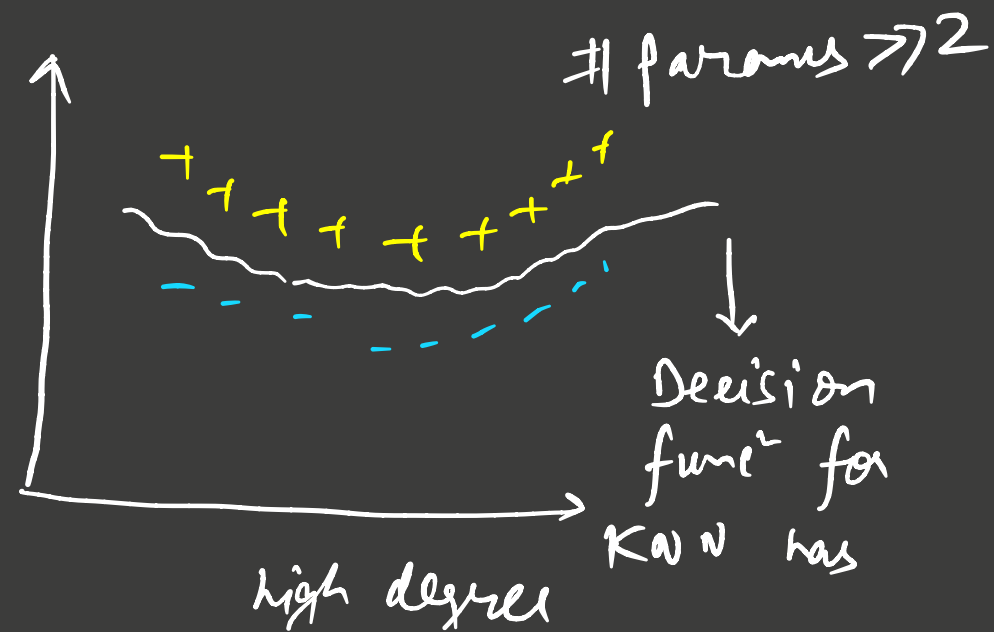 # params >> 2
Decision
funcⁿ for
KNN has
high degree